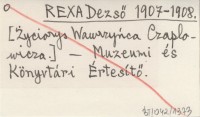 REXA Dezső 1907-1908.
[Życiorys Wawrzyńca Czaplo-
wicza.] — Muzeumi és
Könyvtári Értesitő.